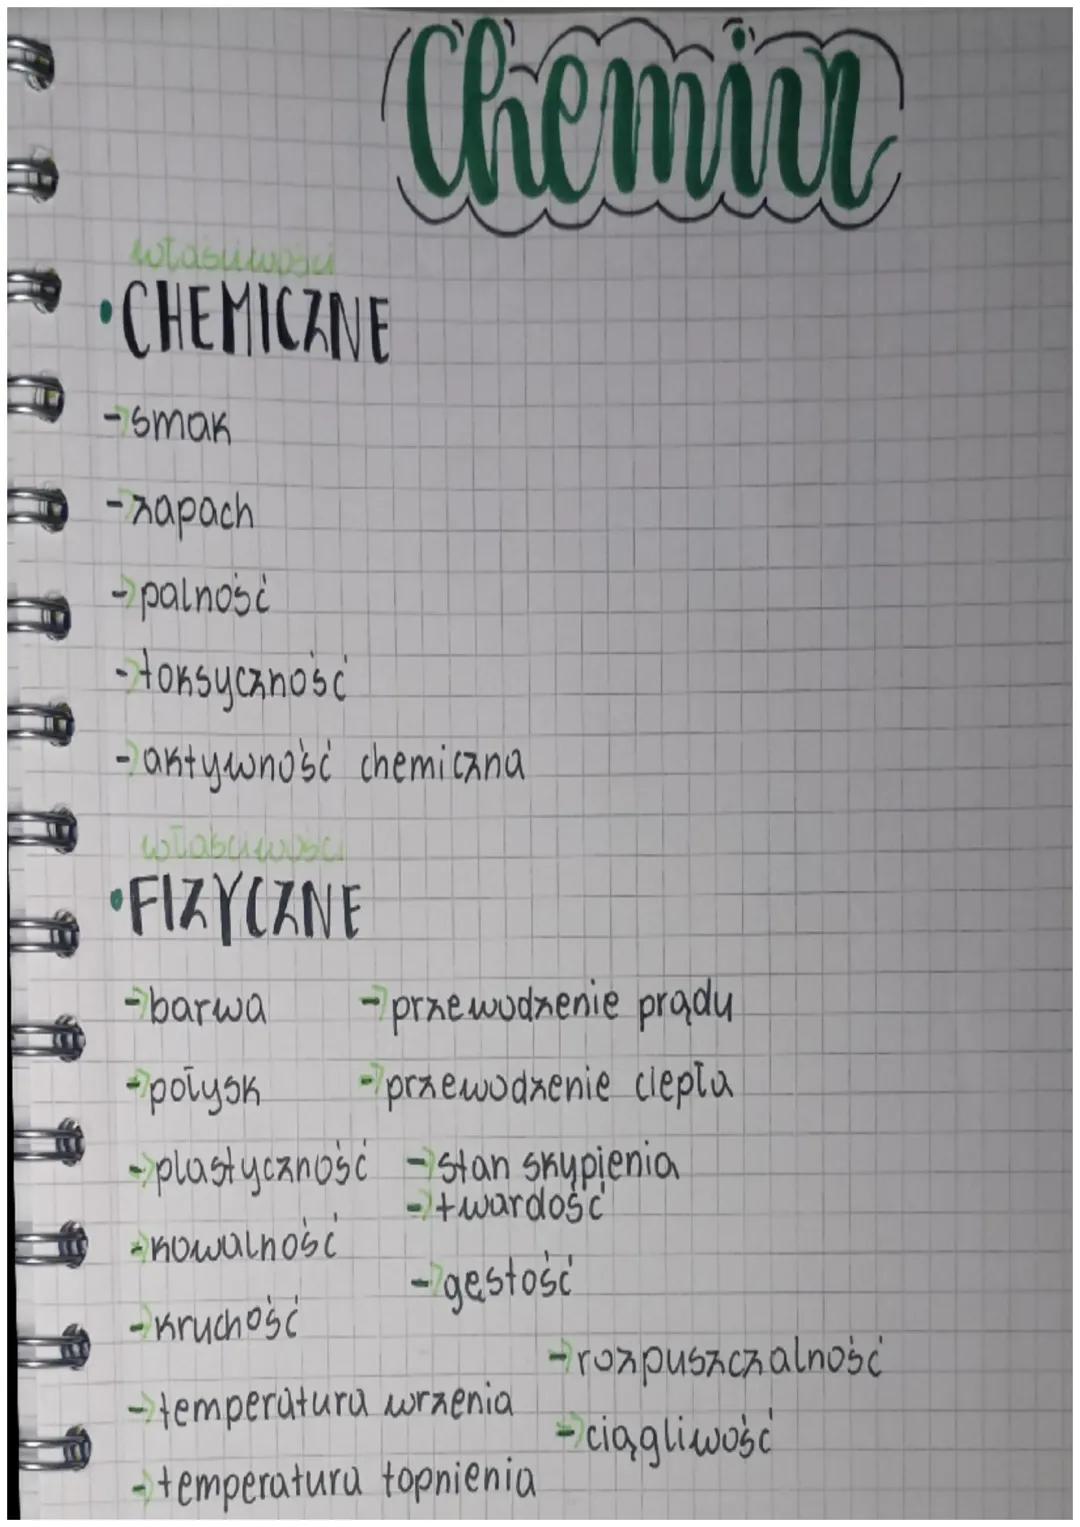 Chemia
właściwości
•CHEMICZNE
→smak
→zapach
→palność
→toksyczność
→aktywność chemiczna
właściwości
•FIZYCZNE
→barwa →przewodzenie prądu
→połysk →przewodzenie ciepła
→plastyczność →stan skupienia
→twardość
→kowalność
→gęstość
→kruchość
→rozpuszczalność
→temperatura wrzenia
→ciągliwość
→temperatura topnienia